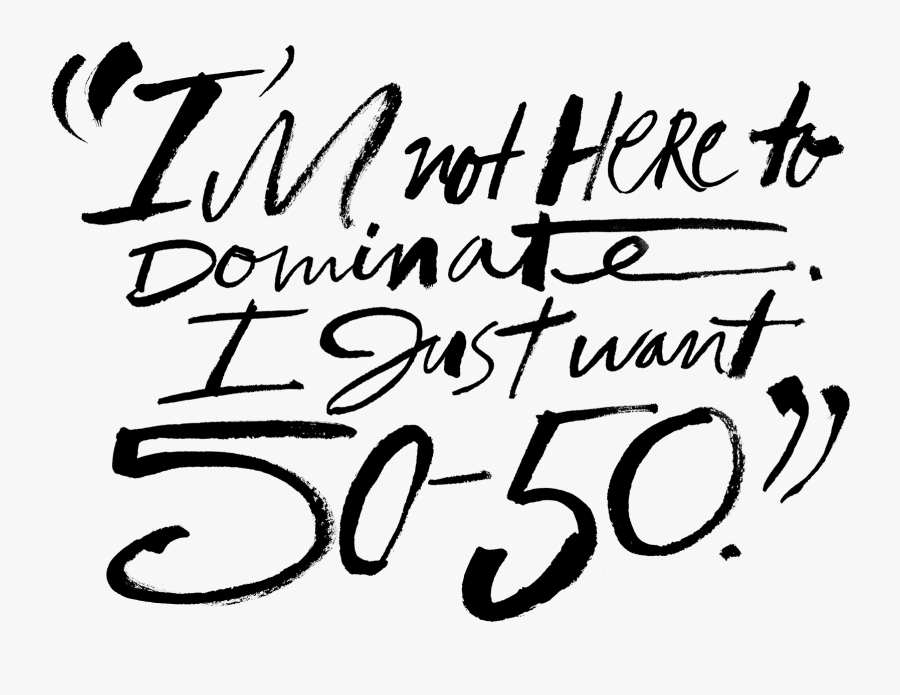 “I'M not HERE to
Dominate.
I Just want
50-50.”